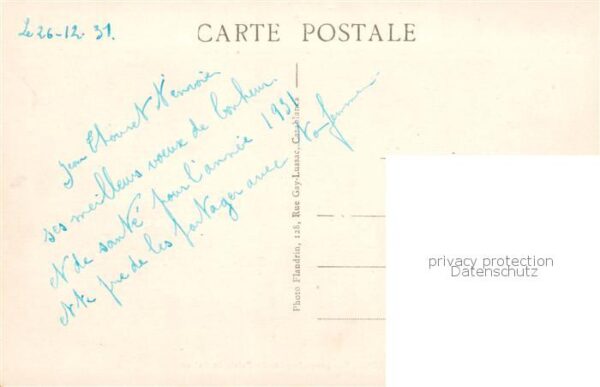 Le 26-12-31.
CARTE POSTALE
Jean t'envoie
ses meilleurs voeux de bonheur
et de santé pour l'année 1931
et te prie de les partager avec ta femme
Photo Flandrin, 128, Rue Gay-Lussac, Casablanca
privacy protection
Datenschutz